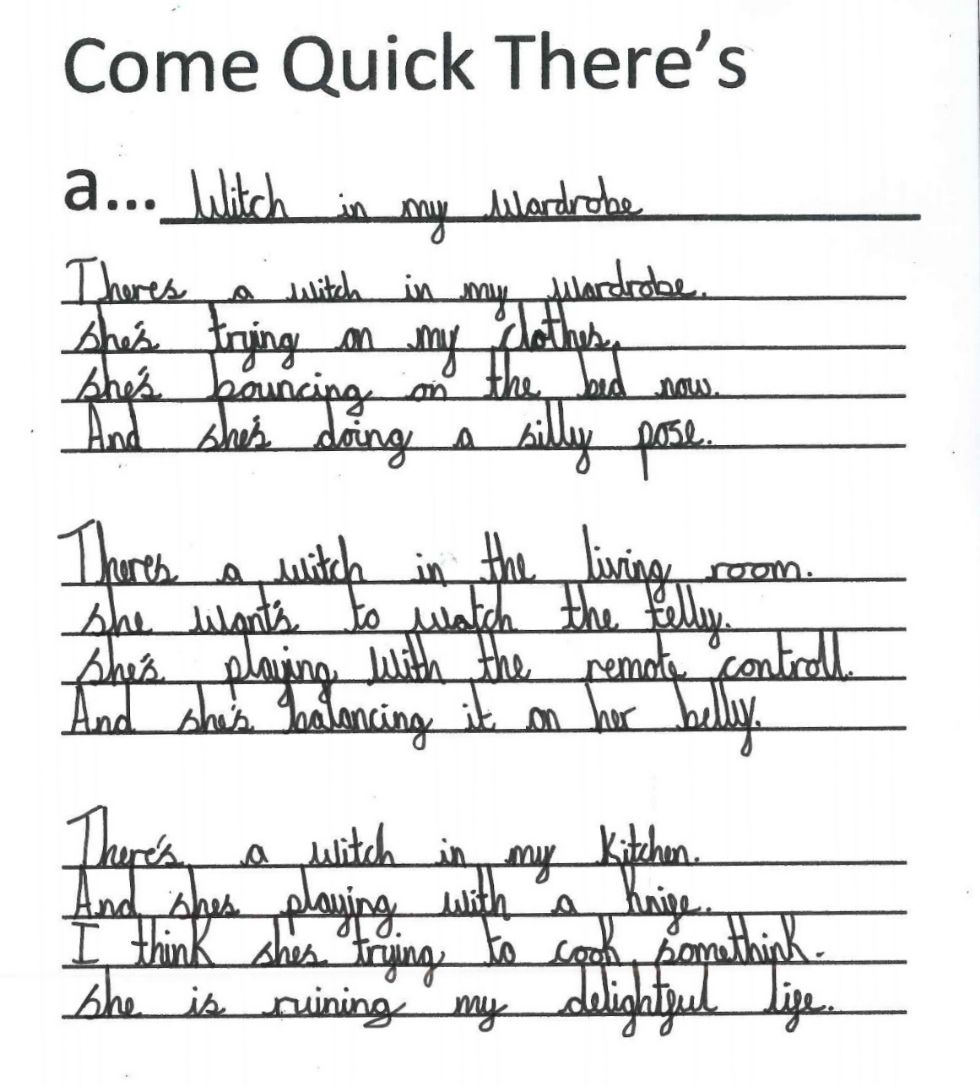 Come Quick There's
a... Witch in my Wardrobe
Theres a witch in my Wardrobe.
she's trying on my clothes.
she's bouncing on the bed now.
And she's doing a silly pose.
There's a witch in the living room.
she want's to watch the telly.
she's playing with the remote controll.
And she's balancing it on her belly.
There's a witch in my kitchen.
And shes playing with a knife.
I think shes trying to cook somethink.
she is ruining my delightful life.